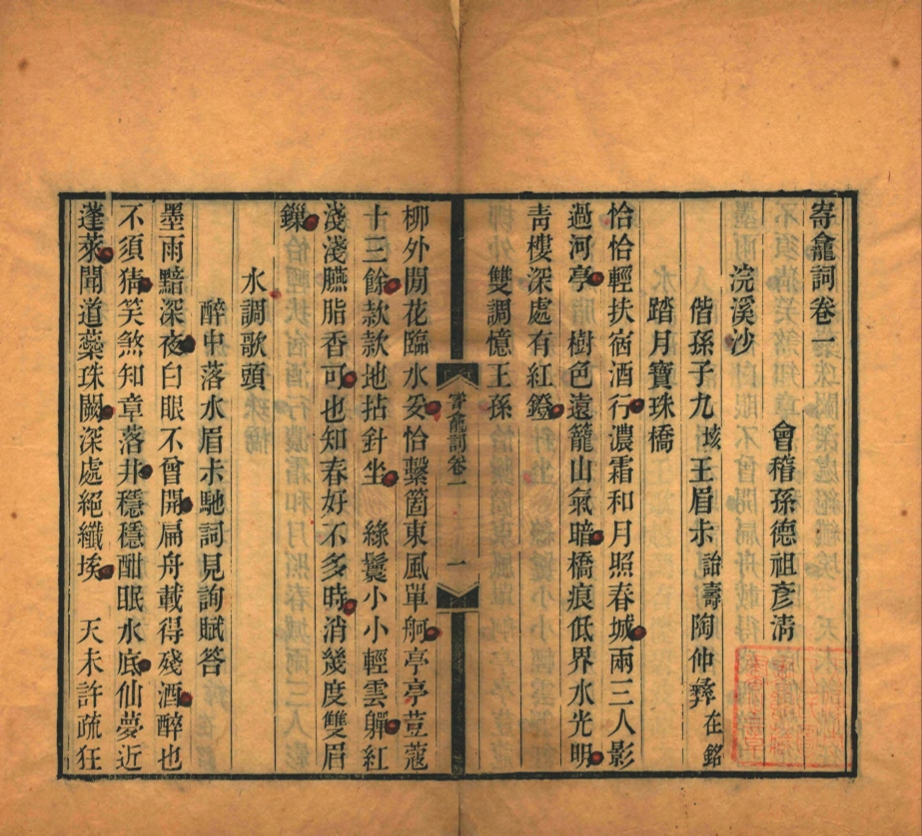 寄龕詞卷一
會稽孫德祖彥清
浣溪沙
偕孫子九垓王眉叔詒壽陶仲彝在銘
踏月寶珠橋
恰恰輕扶宿酒行濃霜和月照春城兩三人影
過河亭　樹色遠籠山氣暗橋痕低界水光明
靑樓深處有紅鐙
雙調憶王孫
柳外閒花臨水妥恰繫箇東風單舸亭亭荳蔻
十三餘款款地拈針坐　綠鬟小小輕雲嚲紅
淺淺臙脂香可也知春好不多時消幾度雙眉
鏁
水調歌頭
醉中落水眉未馳詞見詢賦答
墨雨黯深夜白眼不曾開扁舟載得殘酒醉也
不須猜笑煞知章落井穩穩酣眠水底仙夢近
蓬萊聞道蘂珠闕深處絕纖埃　天未許疏狂
寄龕詞卷一
一